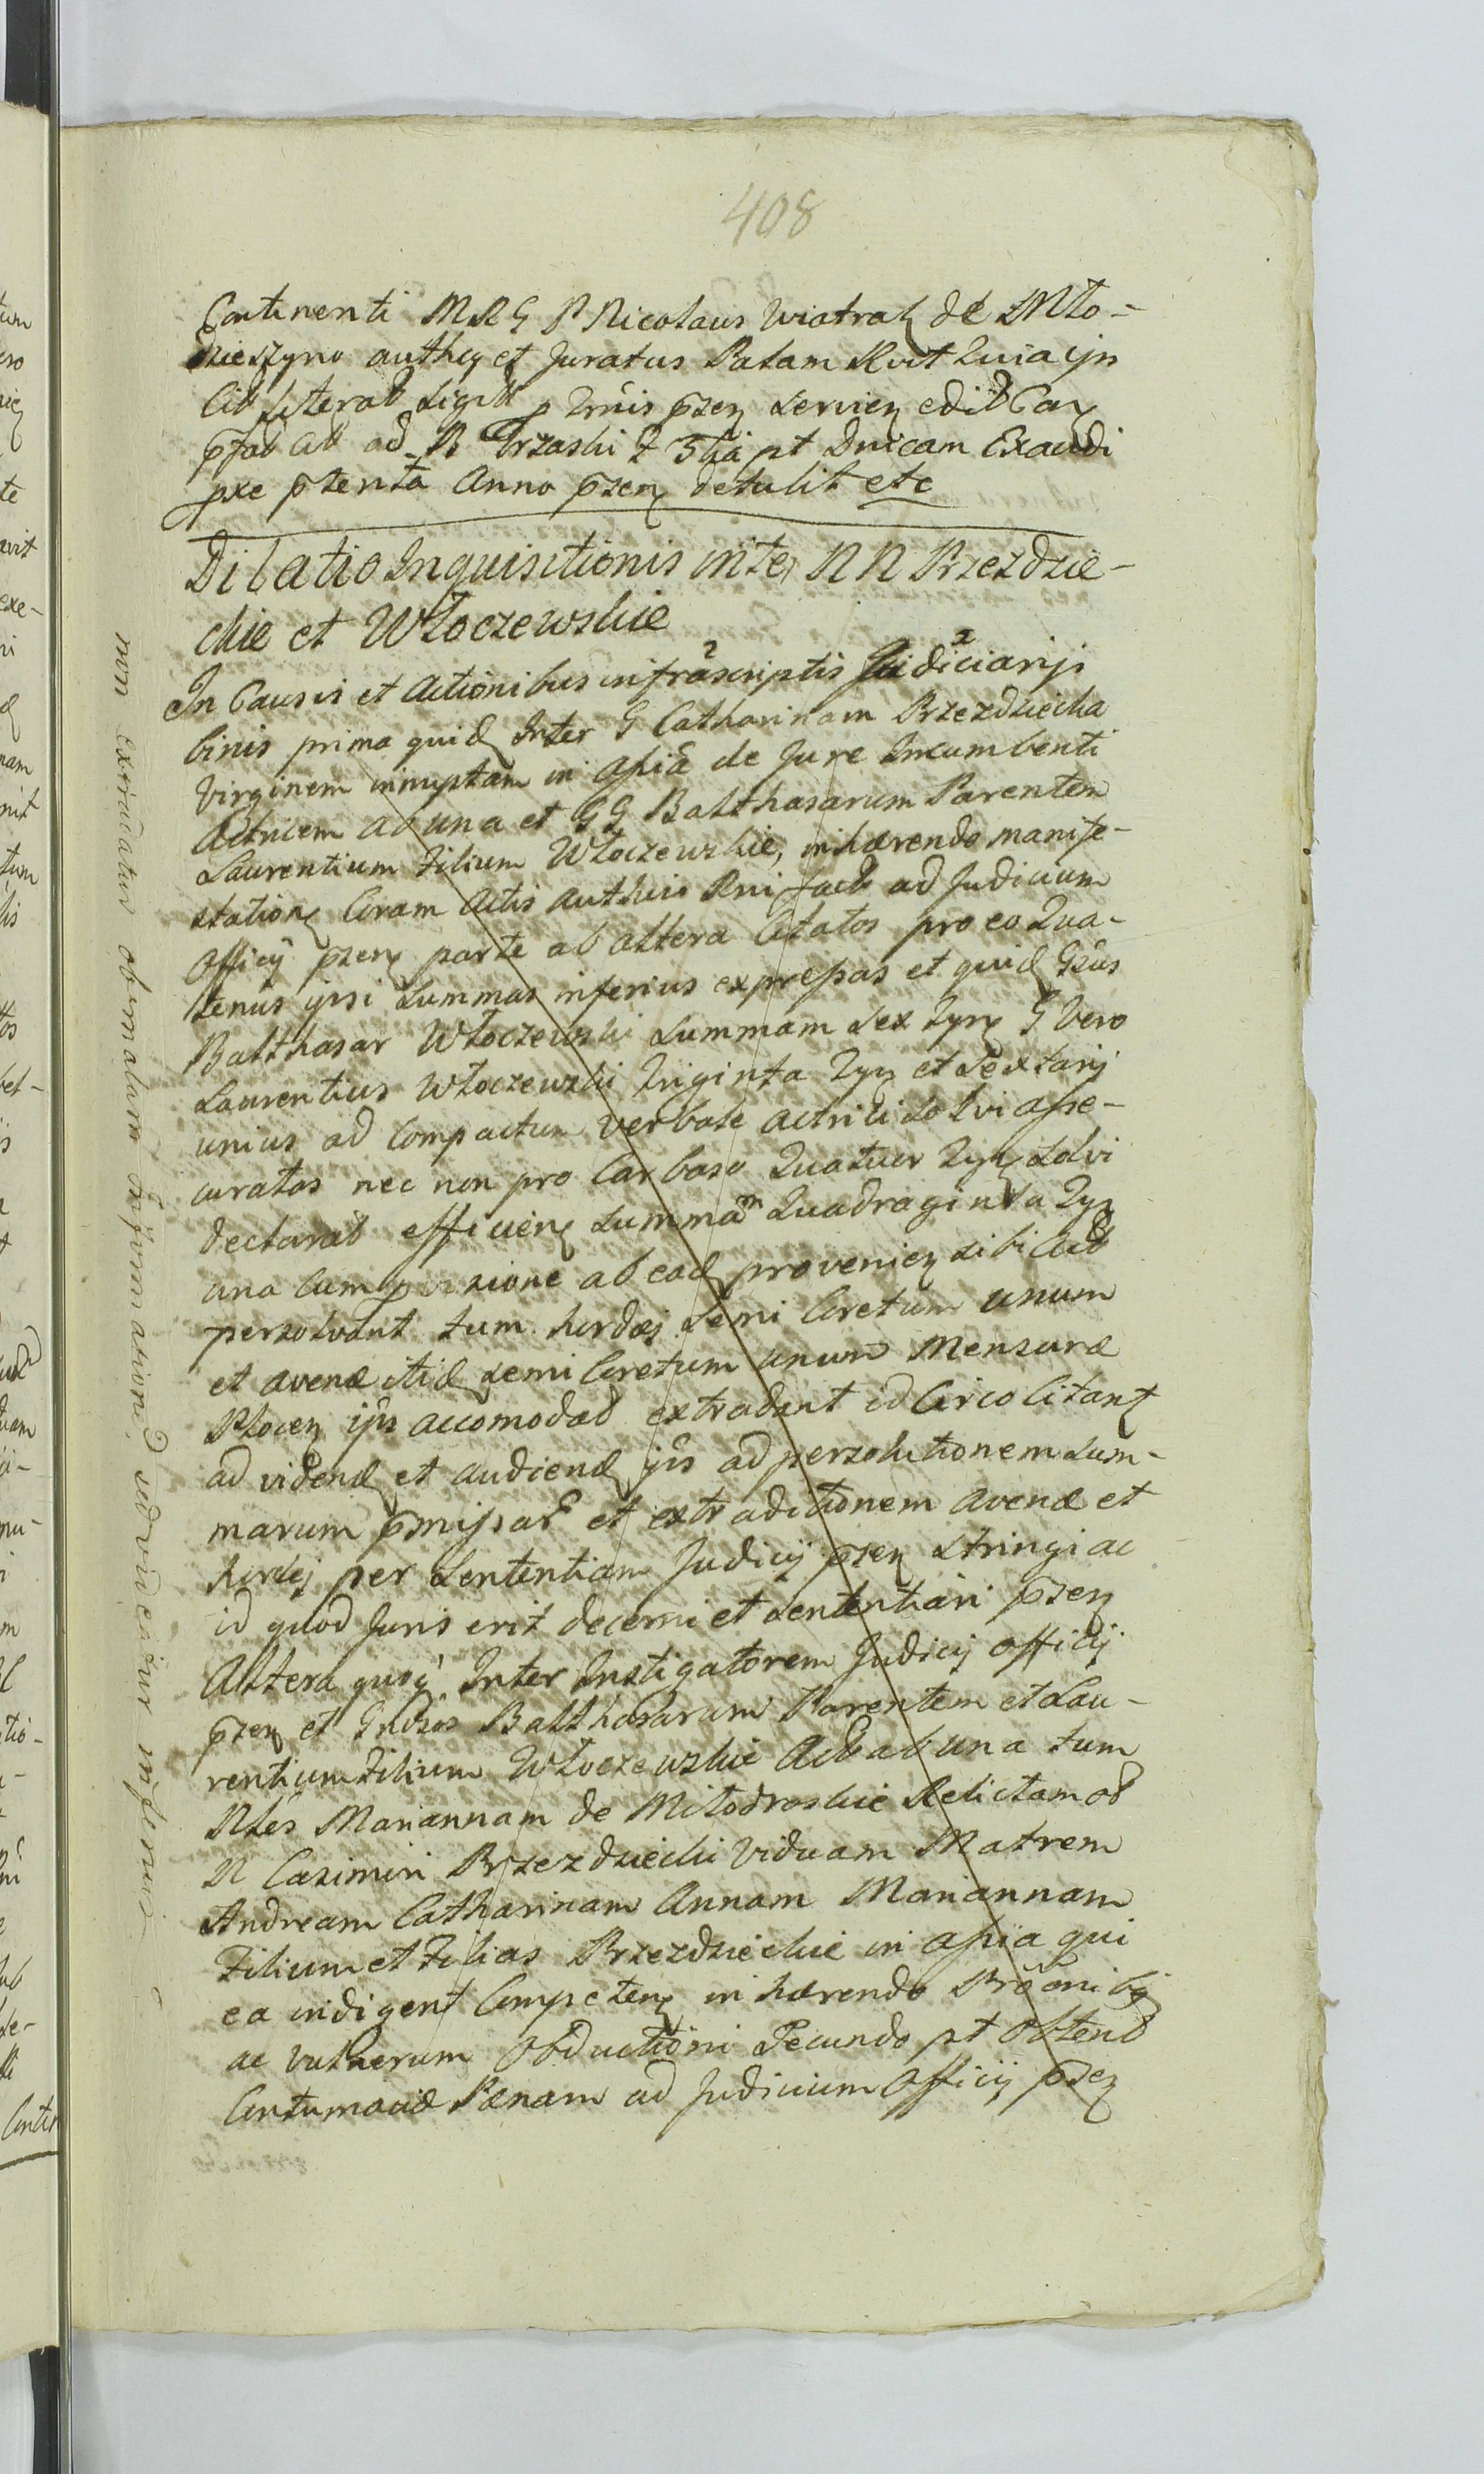 408
Continenti M R G P Nicolaus Wiatrak de Mło-
dzieszyno authcg et Juratus Palam Rvit Quia ijs
Cit literat sigill p Tmis psen servien edit Cau
pfat Act ad B Brzaski F 3tia pt Dnicam Exaudi
pxe ptenta Anno psen detulit etc
Dilatio Inquisitionis inter N N Przezdzie-
ckie et Włoczewskie
In Causis et Actionibus infrascriptis Judiciarijs
binis prima quid Inter G Catharinam Przezdziecka
Virginem innuptam in assia de Jure Incumbenti
Actricem ab una et GG Balthasarum Parentem
Laurentium Filium Włoczewskie, inhærendo manife-
station Coram Actis authcis Rni fact ad Judicium
Officij psen parte ab altera Citatos pro eo Qua-
tenus ipsi Summas inferius expressas et quid Gsus
Balthasar Włoczewski Summam Sex Tyn G Vero
Laurentius Włoczewski Triginta Tyn et Sextarij
unius ad Compactum verbale actrici solvi asse-
curatas nec non pro Carbaso Quatuor Tyn solvi
declarat efficien Summam Quadraginta Tyn
una cum pensione ab ead provenien sibi Act
persolvant tum hordej Semi Coretum unum
et avenæ itid semi Coretum unum Mensuræ
Plocen ijs accomodat extradant id Circo Citant
ad vidend et audiend ijs ad persolutionem Sum-
marum pmissar et extraditionem avenæ et
hordej per Sententiam Judicij psen stringi ac
id quod Juris erit decerni et sententiari psen
Altera qusq Inter Instigatorem Judicij officij
psen et Gnosos Balthasarum Parentem et Lau-
rentium Filium Włoczewskie Act ab una tum
Nles Mariannam de Miłodroskie Relictam ol
N Casimiri Przezdziecki Viduam Matrem
Andream Catharinam Annam Mariannam
Filium et Filias Przezdzieckie in assia qui
ea indigent Competen inhærendo Prõcõnibq
ac Vulnerum Obductioni Secundo pt Obtent
Contumaciæ Pænam ad Judicium Officij psen
non extradatur ob malam Informationem sed videatur inferius